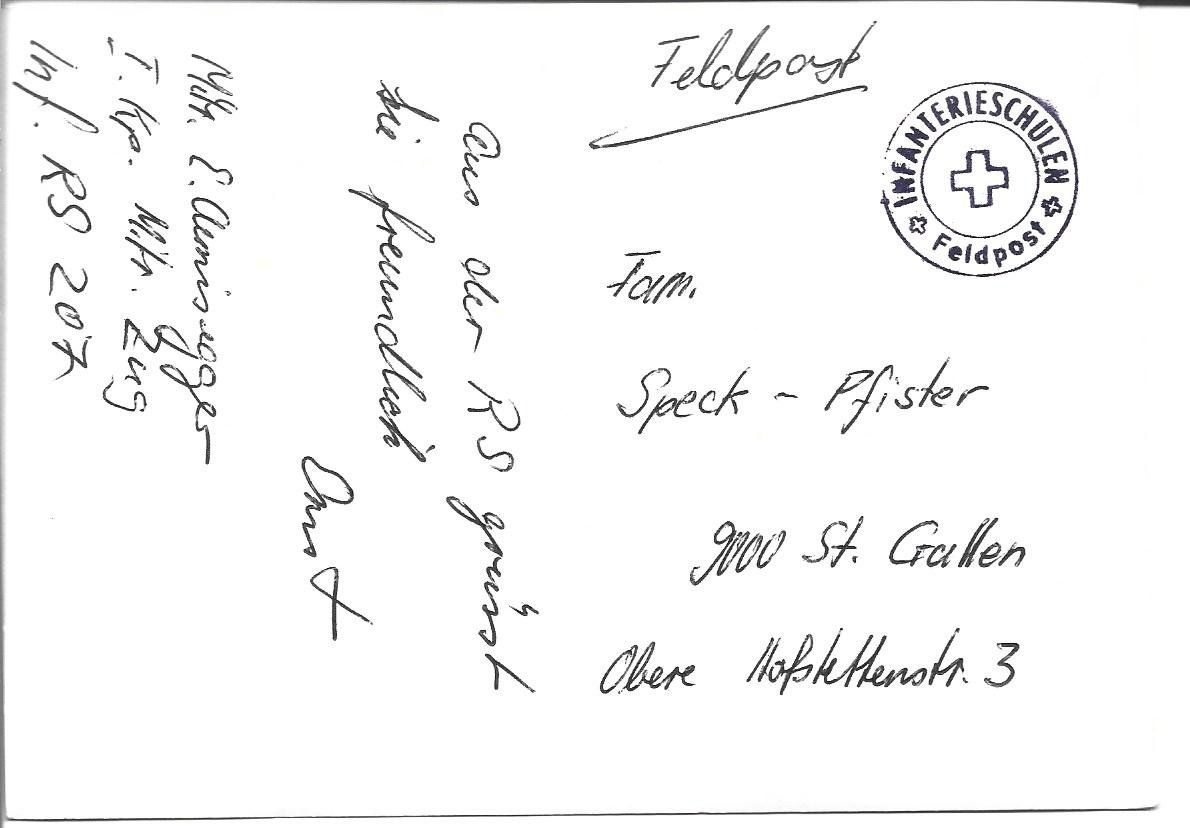 Feldpost
INFANTERIESCHULEN
Feldpost
Fam.
Speck - Pfister
9000 St. Gallen
Obere Hofstettenstr. 3
Aus der RS grüsst
Sie freundlich
Ernst
Mitr. E. Aemisegger
I. Kp. Mitr. Zug
Inf. RS 207